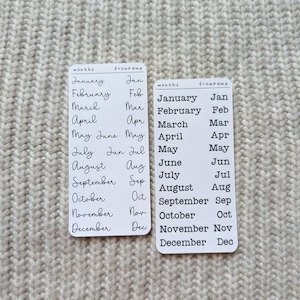 months
January Jan
February Feb
March Mar
April Apr
May June May
July Jun Jul
August Aug
September Sep
October Oct
November Nov
December Dec
months
January Jan
February Feb
March Mar
April Apr
May May
June Jun
July Jul
August Aug
September Sep
October Oct
November Nov
December Dec